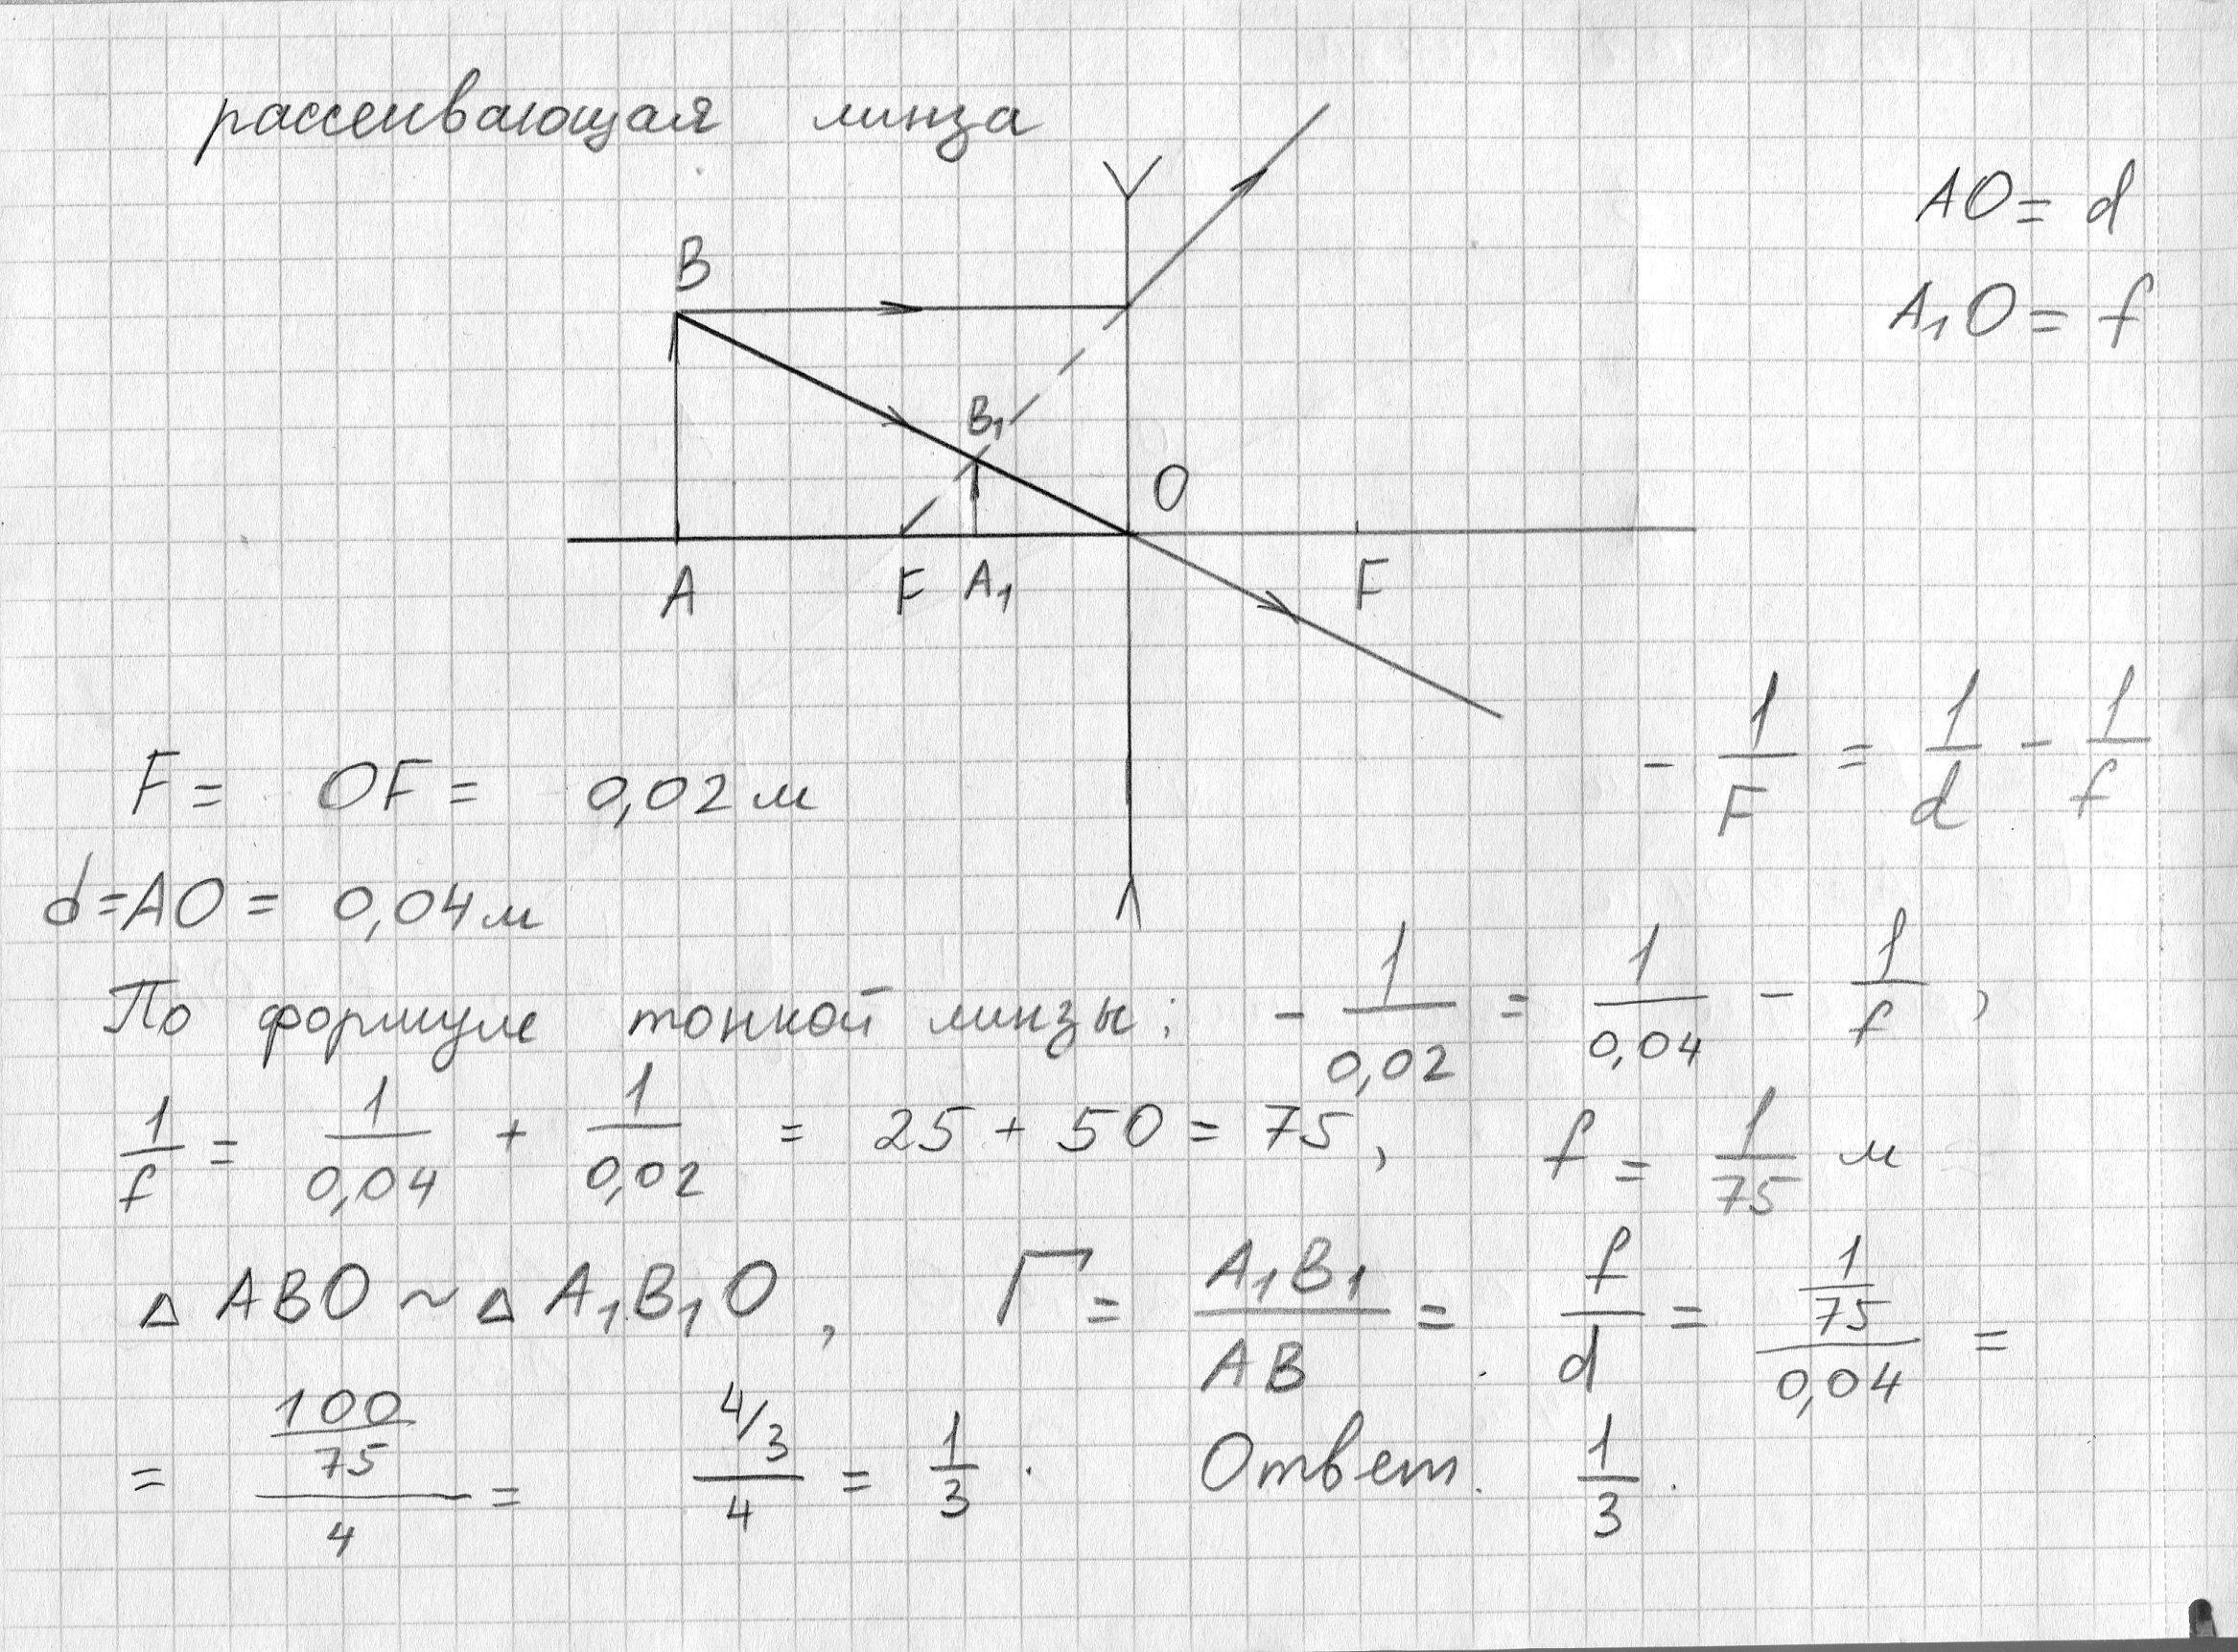 рассеивающая линза
AO = d
A₁O = f
B
B₁
O
A F A₁ F
F = OF = 0,02 м
- 1/F = 1/d - 1/f
d = AO = 0,04 м
По формуле тонкой линзы: - 1/0,02 = 1/0,04 - 1/f,
1/f = 1/0,04 + 1/0,02 = 25 + 50 = 75, f = 1/75 м
△ ABO ~ △ A₁B₁O, Г = A₁B₁/AB = f/d = (1/75)/0,04 =
= (100/75)/4 = (4/3)/4 = 1/3. Ответ. 1/3.